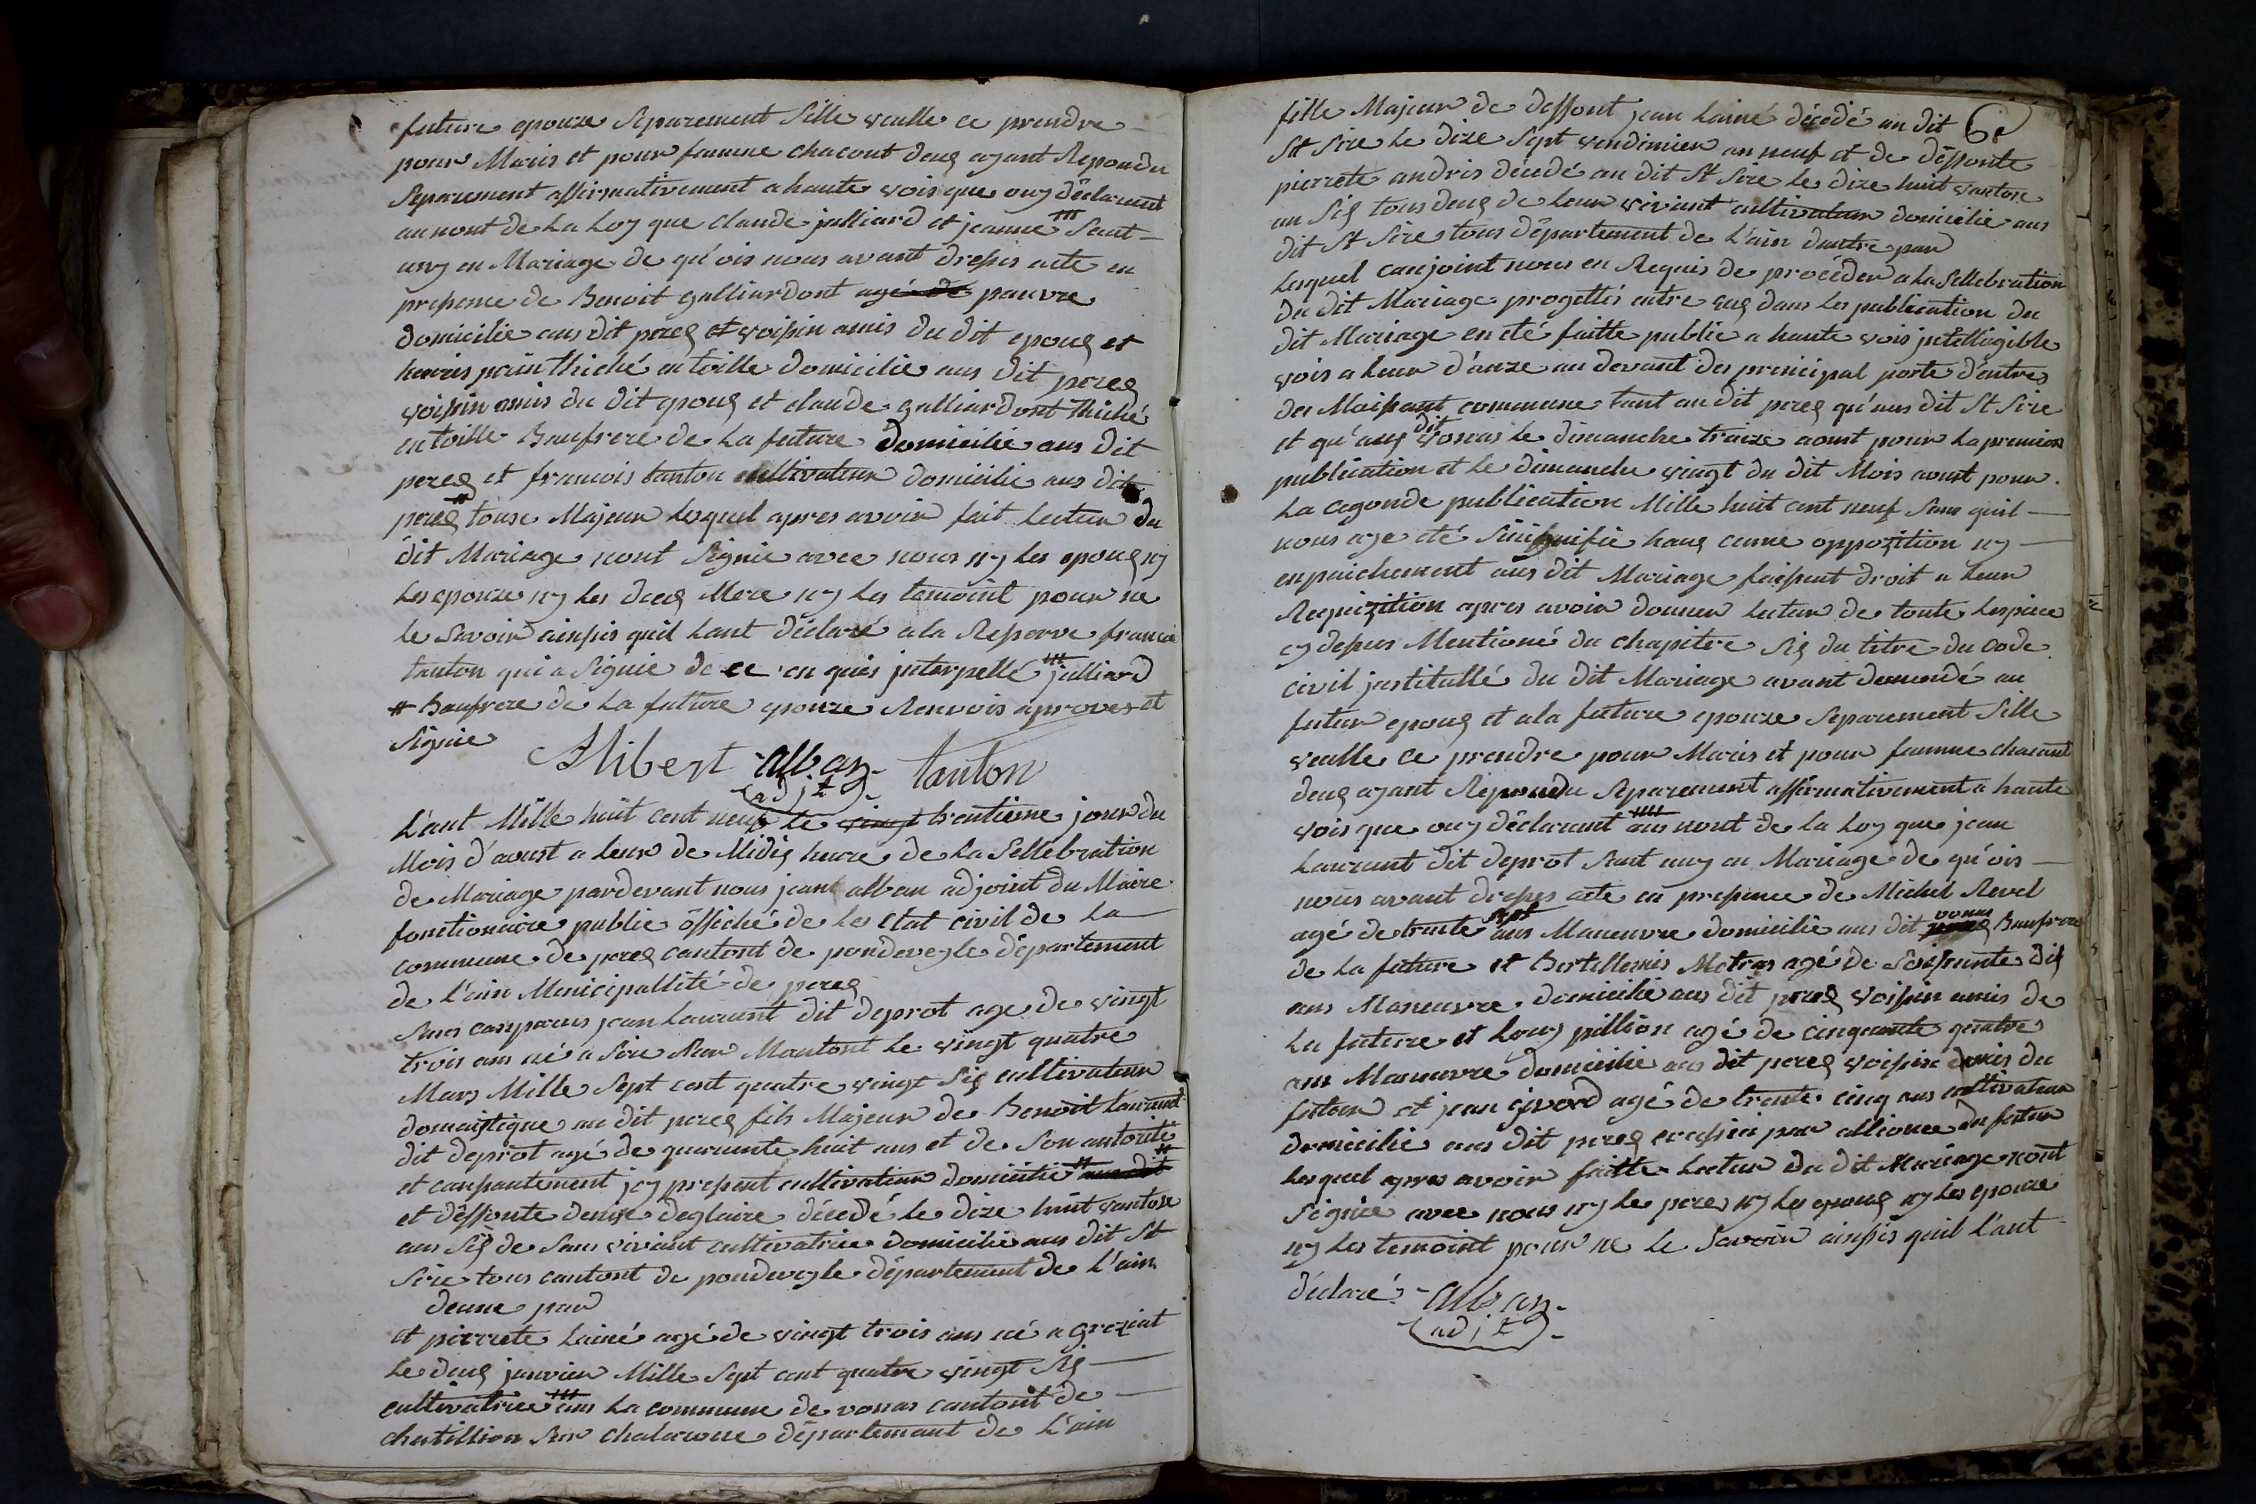 future epouze Separement Sille veulle ce prendre
pour Maris et pour famme chacont deuq ayant Repondu
Separement affirmativement a haute vois que ouy déclarent
au nont de La Loy que claude julliard et jeanne Sont
uny en Mariage de qu'ois nous avant dresses acte en
presence de Benoit galliardont agé de pauvre
domicilie aus dit pereq et voisin amis du dit epouq et
thiché en toille domicilie aus dit pereq
voisin amis du dit epouq et claude galliardont thiché
en toille Baufrere de La future domicilie aus dit
pereq et francois tanton cultivateur domicilie aus dit
pereq # touse Majeur Lesquel apres avoir fait Lecteur du
dit Mariage nont Signie avec nous ny Les epouq ny
Les epouze ny Les deuq Mere ny Les temoint pour ne
le Savoir ainsis quil Lant déclaré a la Reserve francoi
tanton qui a Signie de ce en quis interpellé julliard
# Baufrere de La future epouze Renvois aproves et
Signie
Alibert alban tanton
adjt
L'ant Mille huit cent neuf le vingt trantieme jour du
Mois d'aoust a Leur de Midiq heure de La Sellebration
de Mariage pardevant nous jean alban adjoint du Maire
fonctionaire public offiché de Les Etat civil de La
commune de pereq cantont de pondeveyle département
de L'ain Municipallité de pereq
Sans conparus jean Laurant dit deprot age de vingt
trois ans né a Sire Sur Mantont le vingt quatre
Mars Mille Sept cent quatre vingt Siq cultivateur
domaistique au dit pereq fils Majeur de Benoit Laurant
dit deprot agé de quarante huit ans et de Son autorité
et consantement jcy present cultivateur domicilie aus dit
et déffonte denise deglaire décédé le dize huit vantose
ans Siq de Sons vivant cultivatrice domicilié aus dit St
Sire tous cantont de pondeveyle département de L'ain
deune par
et pierrete Lainé agé de vingt trois ans né a Greziat
Le deuq janvier Mille Sept cent quatre vingt Siq
cultivatrice ans La commune de vonas cantont de
chatillion Sur chalaronne département de L'ain
6e
fille Majeur de deffont jean Lainé décédé au dit
St Sire Le dize Sept vendimier an neuf et de déffonte
pierrete andris décédé au dit St Sire le dize huit vantose
an Siq tous deuq de Leur vivant cultivateur domicilie aus
dit St Sire tous département de L'ain dautre par
Lesquel conjoint nous en Requis de procéder a La Sellebration
du dit Mariage progettés entre euq dans Les publication du
dit Mariage en eté faitte public a haute vois intelligible
vois a Leur d'onze au devant des principal porte d'entres
des Maisont commune tant au dit pereq qu'aus dit St Sire
et qu'aus dit vonas le dimanche traize aoust pour La premier
publication et le dimanche vingt du dit Mois aoust pour
La cegonde publication Mille huit cent neuf Sans quil
nous aye eté Sinifie hauq cune oppozition ny
enpaichement aus dit Mariage faisent droit a Leur
Requizition apres avoir donner Lecteur de toute Les piece
cy desus Mentioné du chapitre Siq du titre du code
civil jnstitullé du dit Mariage avant demendé au
futur epouq et a la future epouze Separement Sille
veulle ce prendre pour Maris et pour famme chacunt
deuq ayant Repondu Separement affirmativement a haute
vois que ouy déclarant aus nont de La Loy que jean
Laurant dit deprot Sont uny en Mariage de qu'ois
nous avant dresses acte en presence de Michel Revel
agé de trante sept ans Maneuvre domicilie aus dit vonas Baufrere
de La future et Bertellemis Metras agé de Soisante diq
ans Maneuvre domicilie aus dit pereq voisin amis de
La future et Louy pillion agé de cinquante quatre
ans Maneuvre domicilie aus dit pereq voisin amis du
futeur et jean givord agé de trente cinq ans cultivateur
domicilie aus dit pereq par allience du futur
Lesquel apres avoir faitte Lecteur du dit Mariage nont
Signie avec nous ny Le pere ny Les epouq ny Les epouze
ny Les temoint pour ne le Savoir ainsis quil L'ant
déclaré
alban
adjt